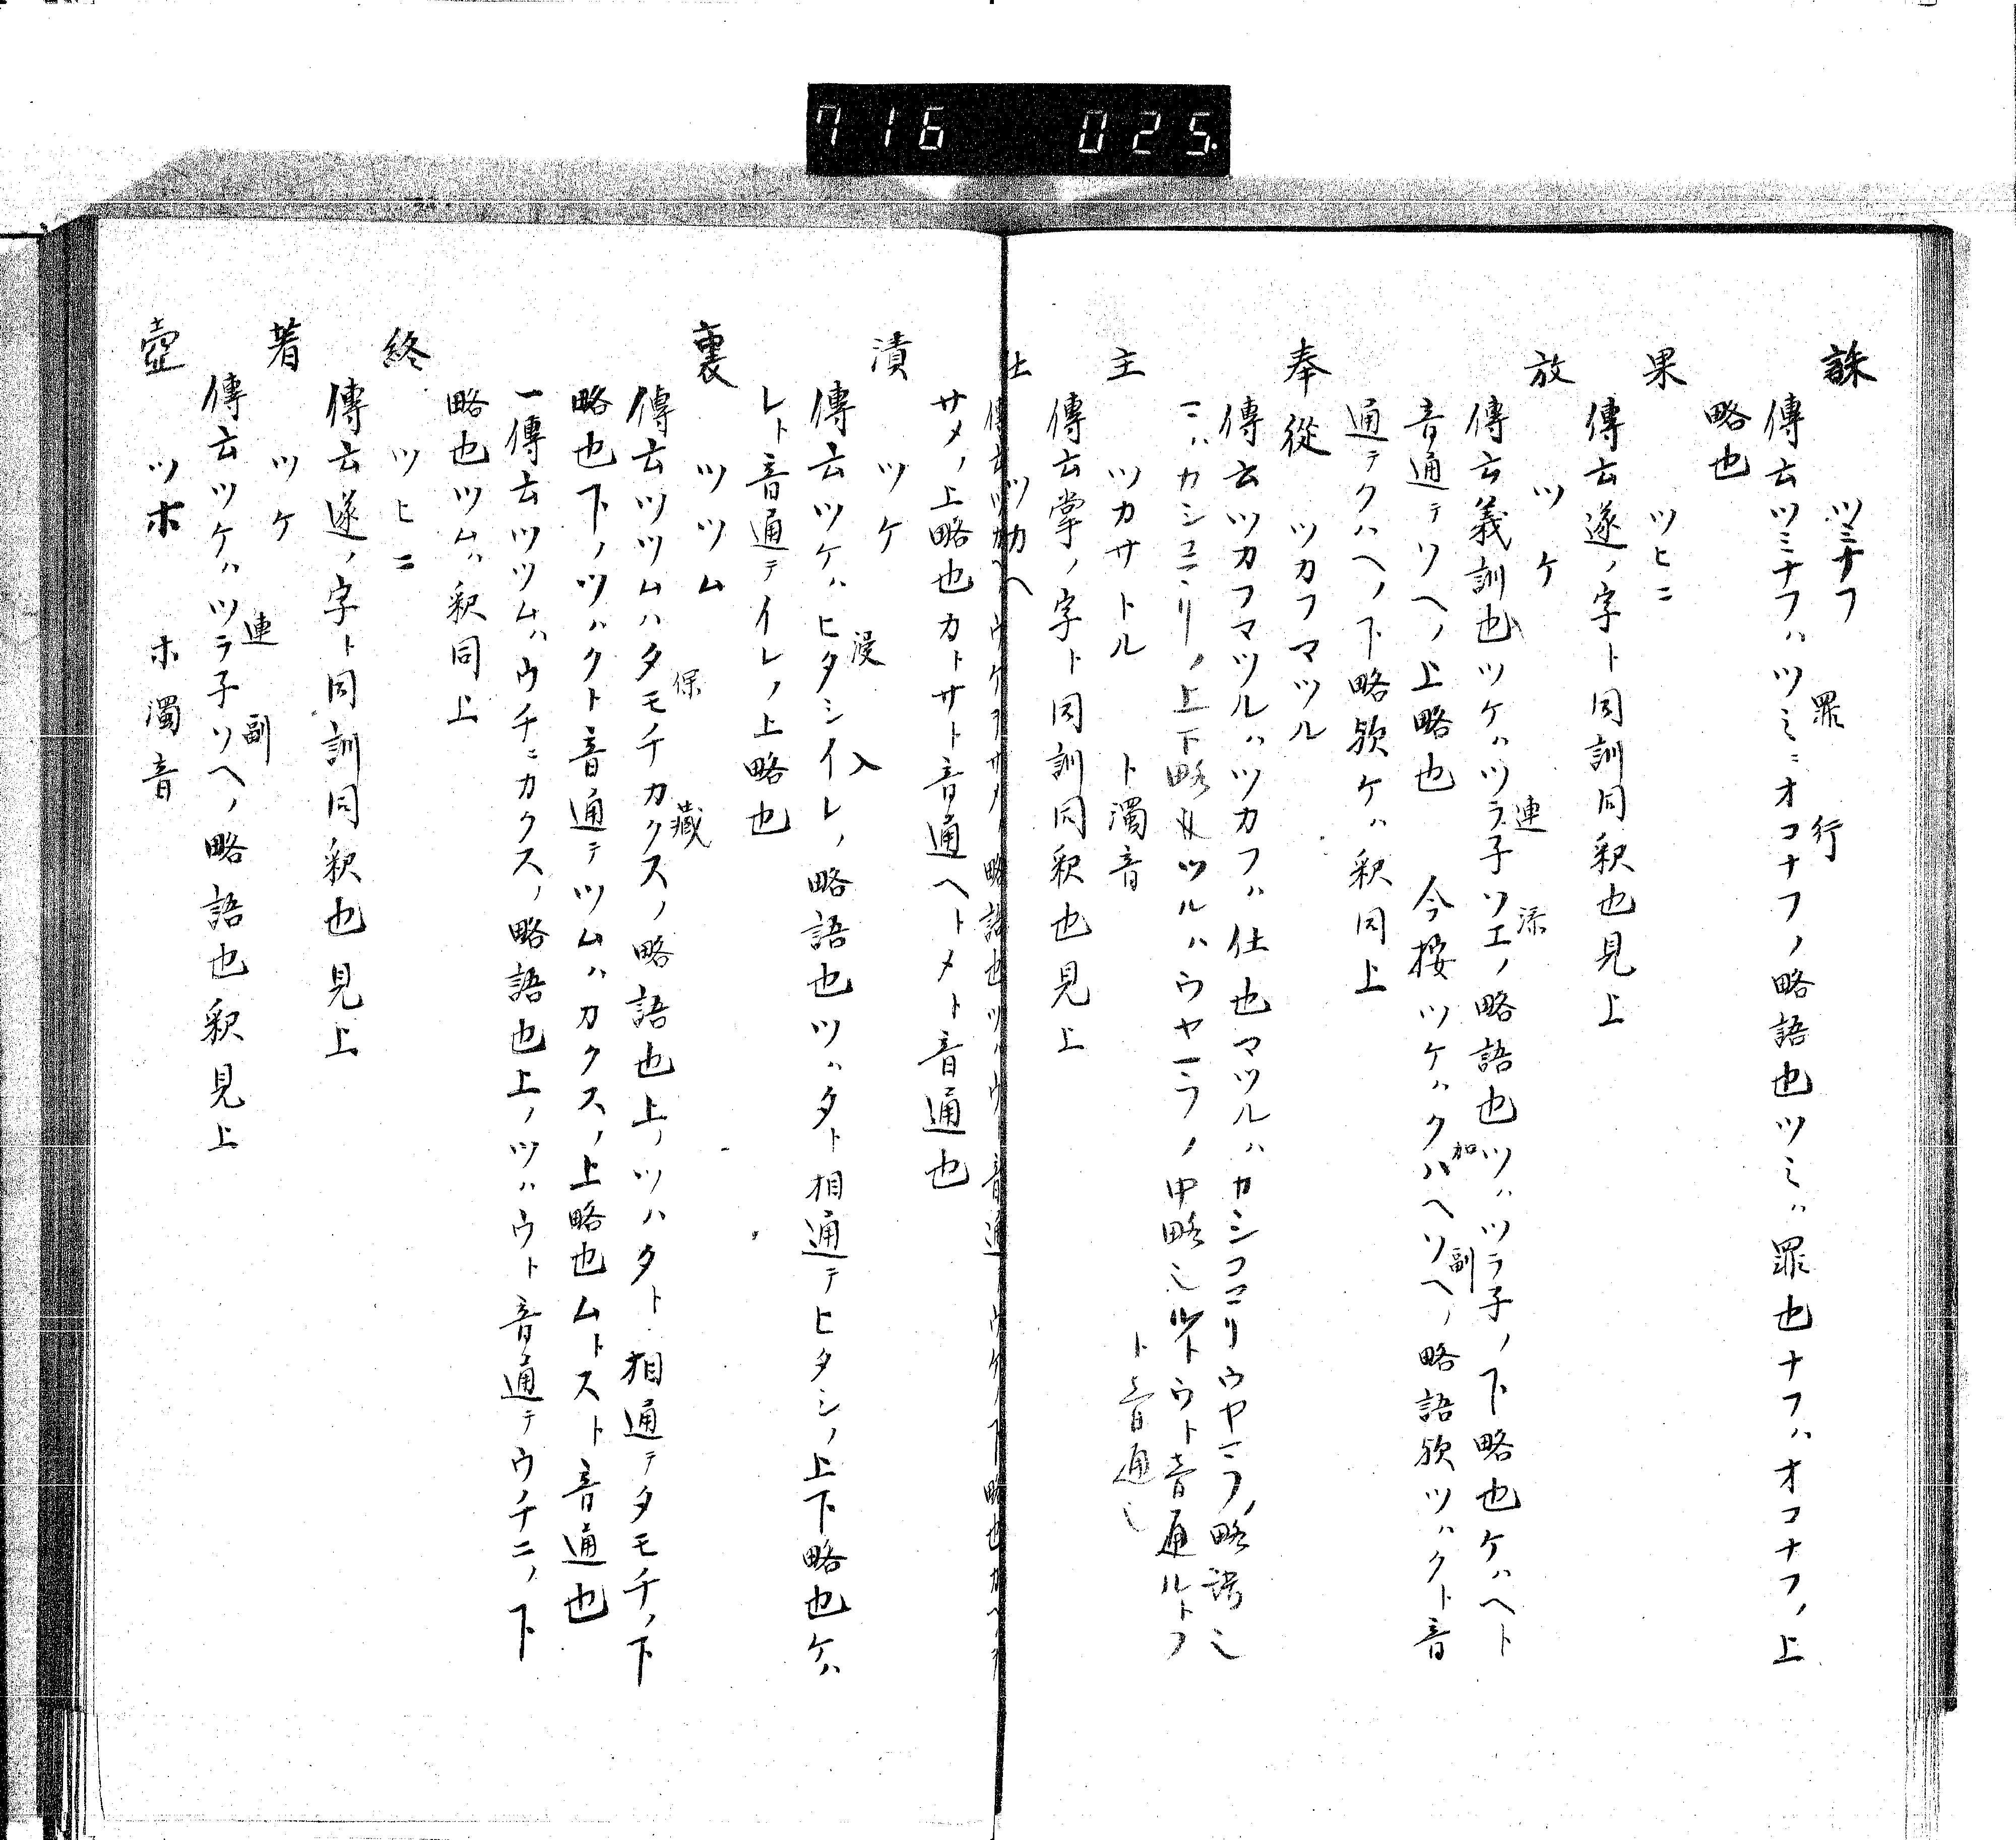 716 025
誅 ツミナフ
罪 行
傳云ツミナフハツミニオコナフノ略語也ツミハ罪也ナフハオコナフノ上
略也
果 ツヒニ
傳云遂ノ字ト同訓同釈也見上
放 ツケ
連 添
傳云義訓也ツケハツラ子ソエノ略語也ツハツラ子ノ下略也ケハヘト
加 副
音通テソヘノ上略也 今按ツケハクハヘソヘノ略語欤ツハクト音
通テクハヘノ下略欤ケハ釈同上
奉從 ツカフマツル
傳云ツカフマツルハツカフハ仕也マツルハカシコマリウヤマフノ略語也
マハカシコマリノ上下略也ツルハウヤマフノ中略也ルトウト音通ルトフ
ト音通也
主 ツカサトル ト濁音
傳云掌ノ字ト同訓同釈也見上
仕 ツカヘ
サメノ上略也カトサト音通ヘトメト音通也
漬 ツケ
浸 入
傳云ツケハヒタシイレノ略語也ツハタト相通テヒタシノ上下略也ケハ
レト音通テイレノ上略也
裏 ツツム
保 藏
傳云ツツムハタモチカクスノ略語也上ノツハタト相通テタモチノ下
略也下ノツハクト音通テツムハカクスノ上略也ムトスト音通也
一傳云ツツムハウチニカクスノ略語也上ノツハウト音通テウチニノ下
略也ツムハ釈同上
終 ツヒニ
傳云遂ノ字ト同訓同釈也見上
着 ツケ
連 副
傳云ツケハツラ子ソヘノ略語也釈見上
壺 ツホ ホ濁音